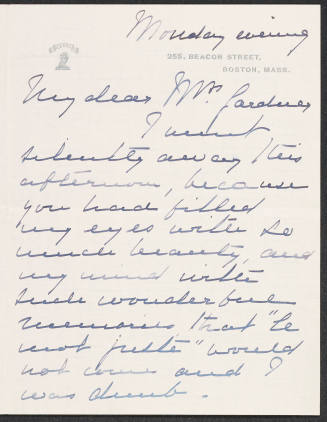 Monday evening
255, BEACON STREET,
BOSTON, MASS.
My dear Mrs. Gardner
I went
silently away this
afternoon, because
you had filled
my eyes with so
much beauty, and
my mind with
such wonderful
memories, that "le
mot juste" would
not come and I
was dumb.